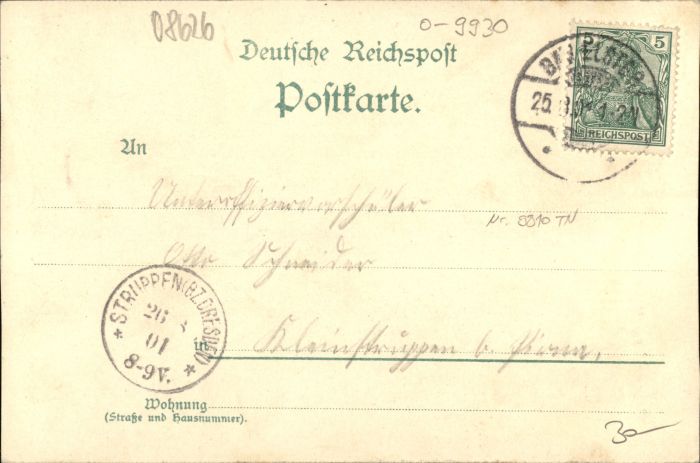 08626
0-9930
Deutsche Reichspost
Postkarte.
5
REICHSPOST
25. 8.01. 1-2N
An
Unteroffiziervorschüler
Otto Schneider
Nr. 9910 TN
STRUPPEN (BZ. DRESDEN)
26 8
01
8-9V.
in Kleinstruppen b. Pirna,
Wohnung
(Straße und Hausnummer).